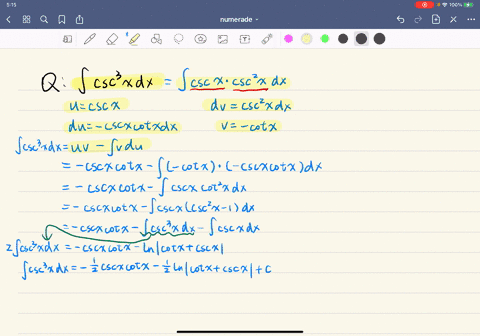 5:15
100%
numerade
Q: ∫ csc³x dx = ∫ csc x · csc²x dx
u = csc x dv = csc²x dx
du = -csc x cot x dx v = -cot x
∫csc³x dx = uv - ∫v du
= -csc x cot x - ∫(-cot x) · (-csc x cot x) dx
= -csc x cot x - ∫ csc x cot²x dx
= -csc x cot x - ∫ csc x (csc²x - 1) dx
= -csc x cot x - ∫csc³x dx - ∫csc x dx
2∫csc³x dx = -csc x cot x - ln|cot x + csc x|
∫csc³x dx = -½ csc x cot x - ½ ln|cot x + csc x| + C